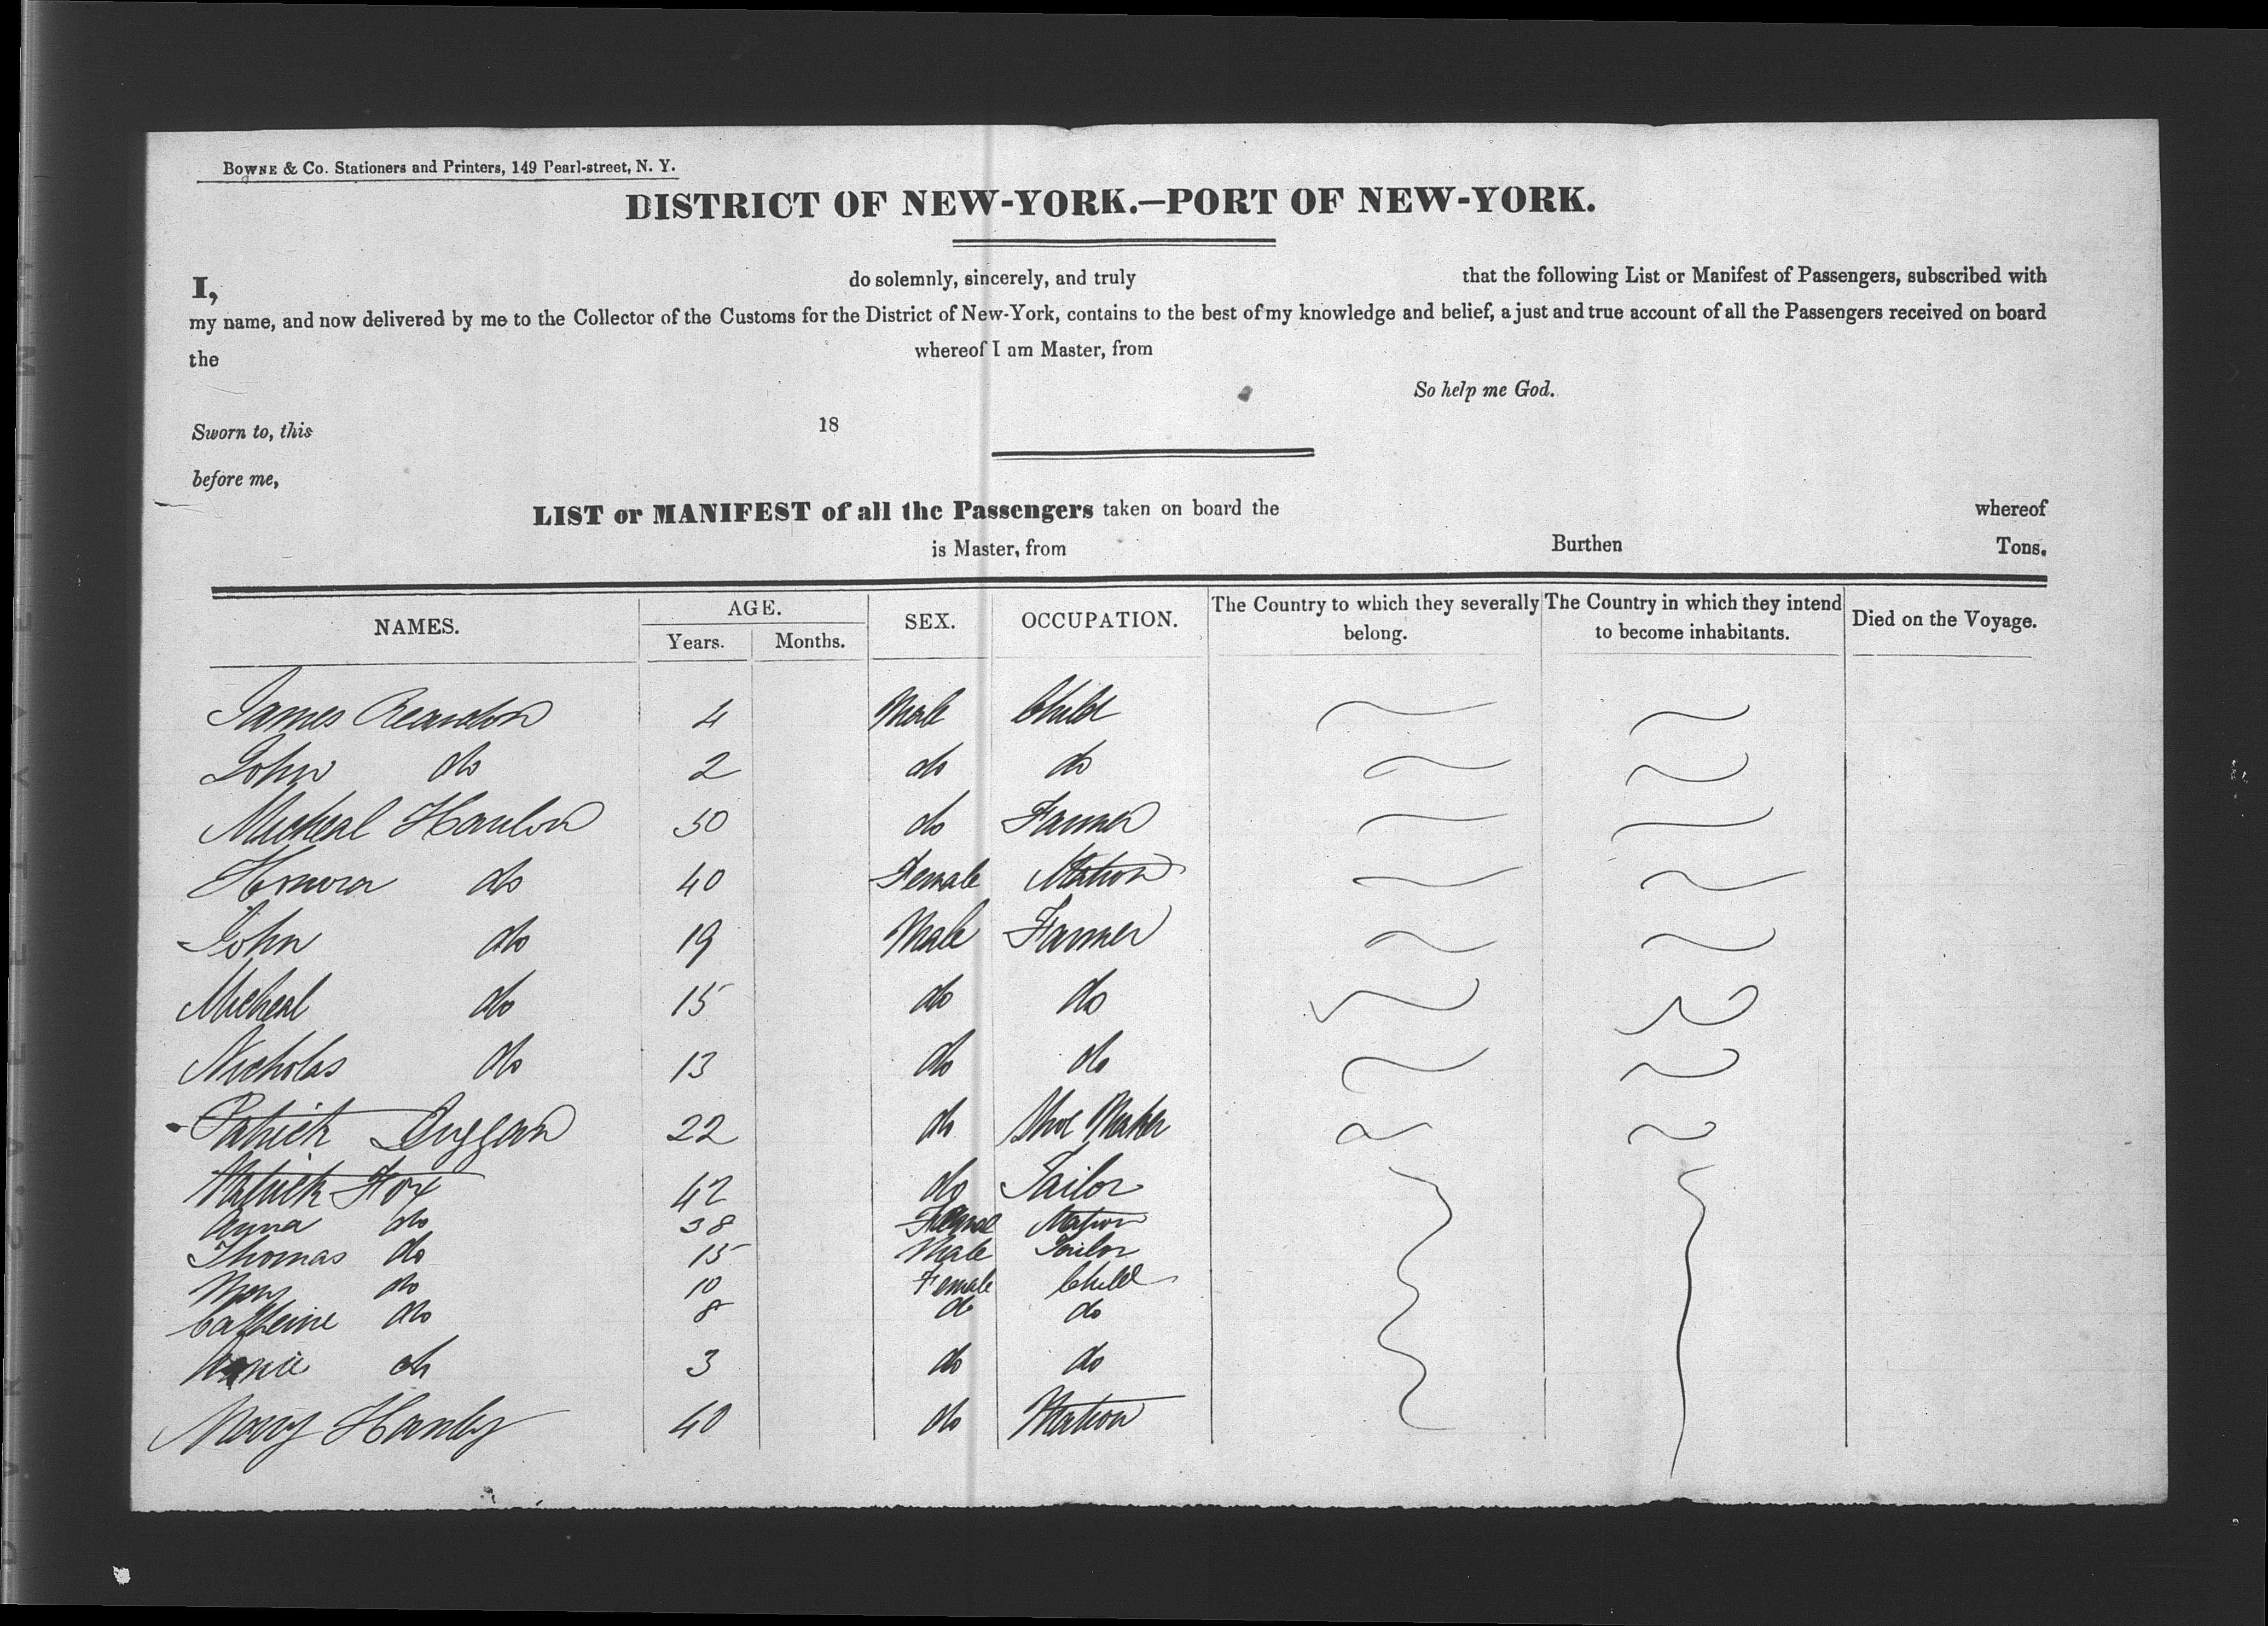 BOWNE & Co. Stationers and Printers, 149 Pearl-street, N. Y.
DISTRICT OF NEW-YORK.—PORT OF NEW-YORK.
I, do solemnly, sincerely, and truly that the following List or Manifest of Passengers, subscribed with
my name, and now delivered by me to the Collector of the Customs for the District of New-York, contains to the best of my knowledge and belief, a just and true account of all the Passengers received on board
the whereof I am Master, from
So help me God.
Sworn to, this 18
before me,
LIST or MANIFEST of all the Passengers taken on board the whereof
is Master, from Burthen Tons.
NAMES. AGE. Years. Months. SEX. OCCUPATION. The Country to which they severally belong. The Country in which they intend to become inhabitants. Died on the Voyage.
James Reardon 4 Male Child
John do 2 do do
Micheal Hanlon 50 do Farmer
Honora do 40 Female Matron
John do 19 Male Farmer
Micheal do 15 do do
Nicholas do 13 do do
Patrick Duggan 22 do Shoe Maker
Patrick Fox 42 do Tailor
Anna do 38 Female Matron
Thomas do 15 Male Tailor
Mary do 10 Female Child
Catherine do 8 do do
do 3 do do
Mary Hanley 40 do Matron